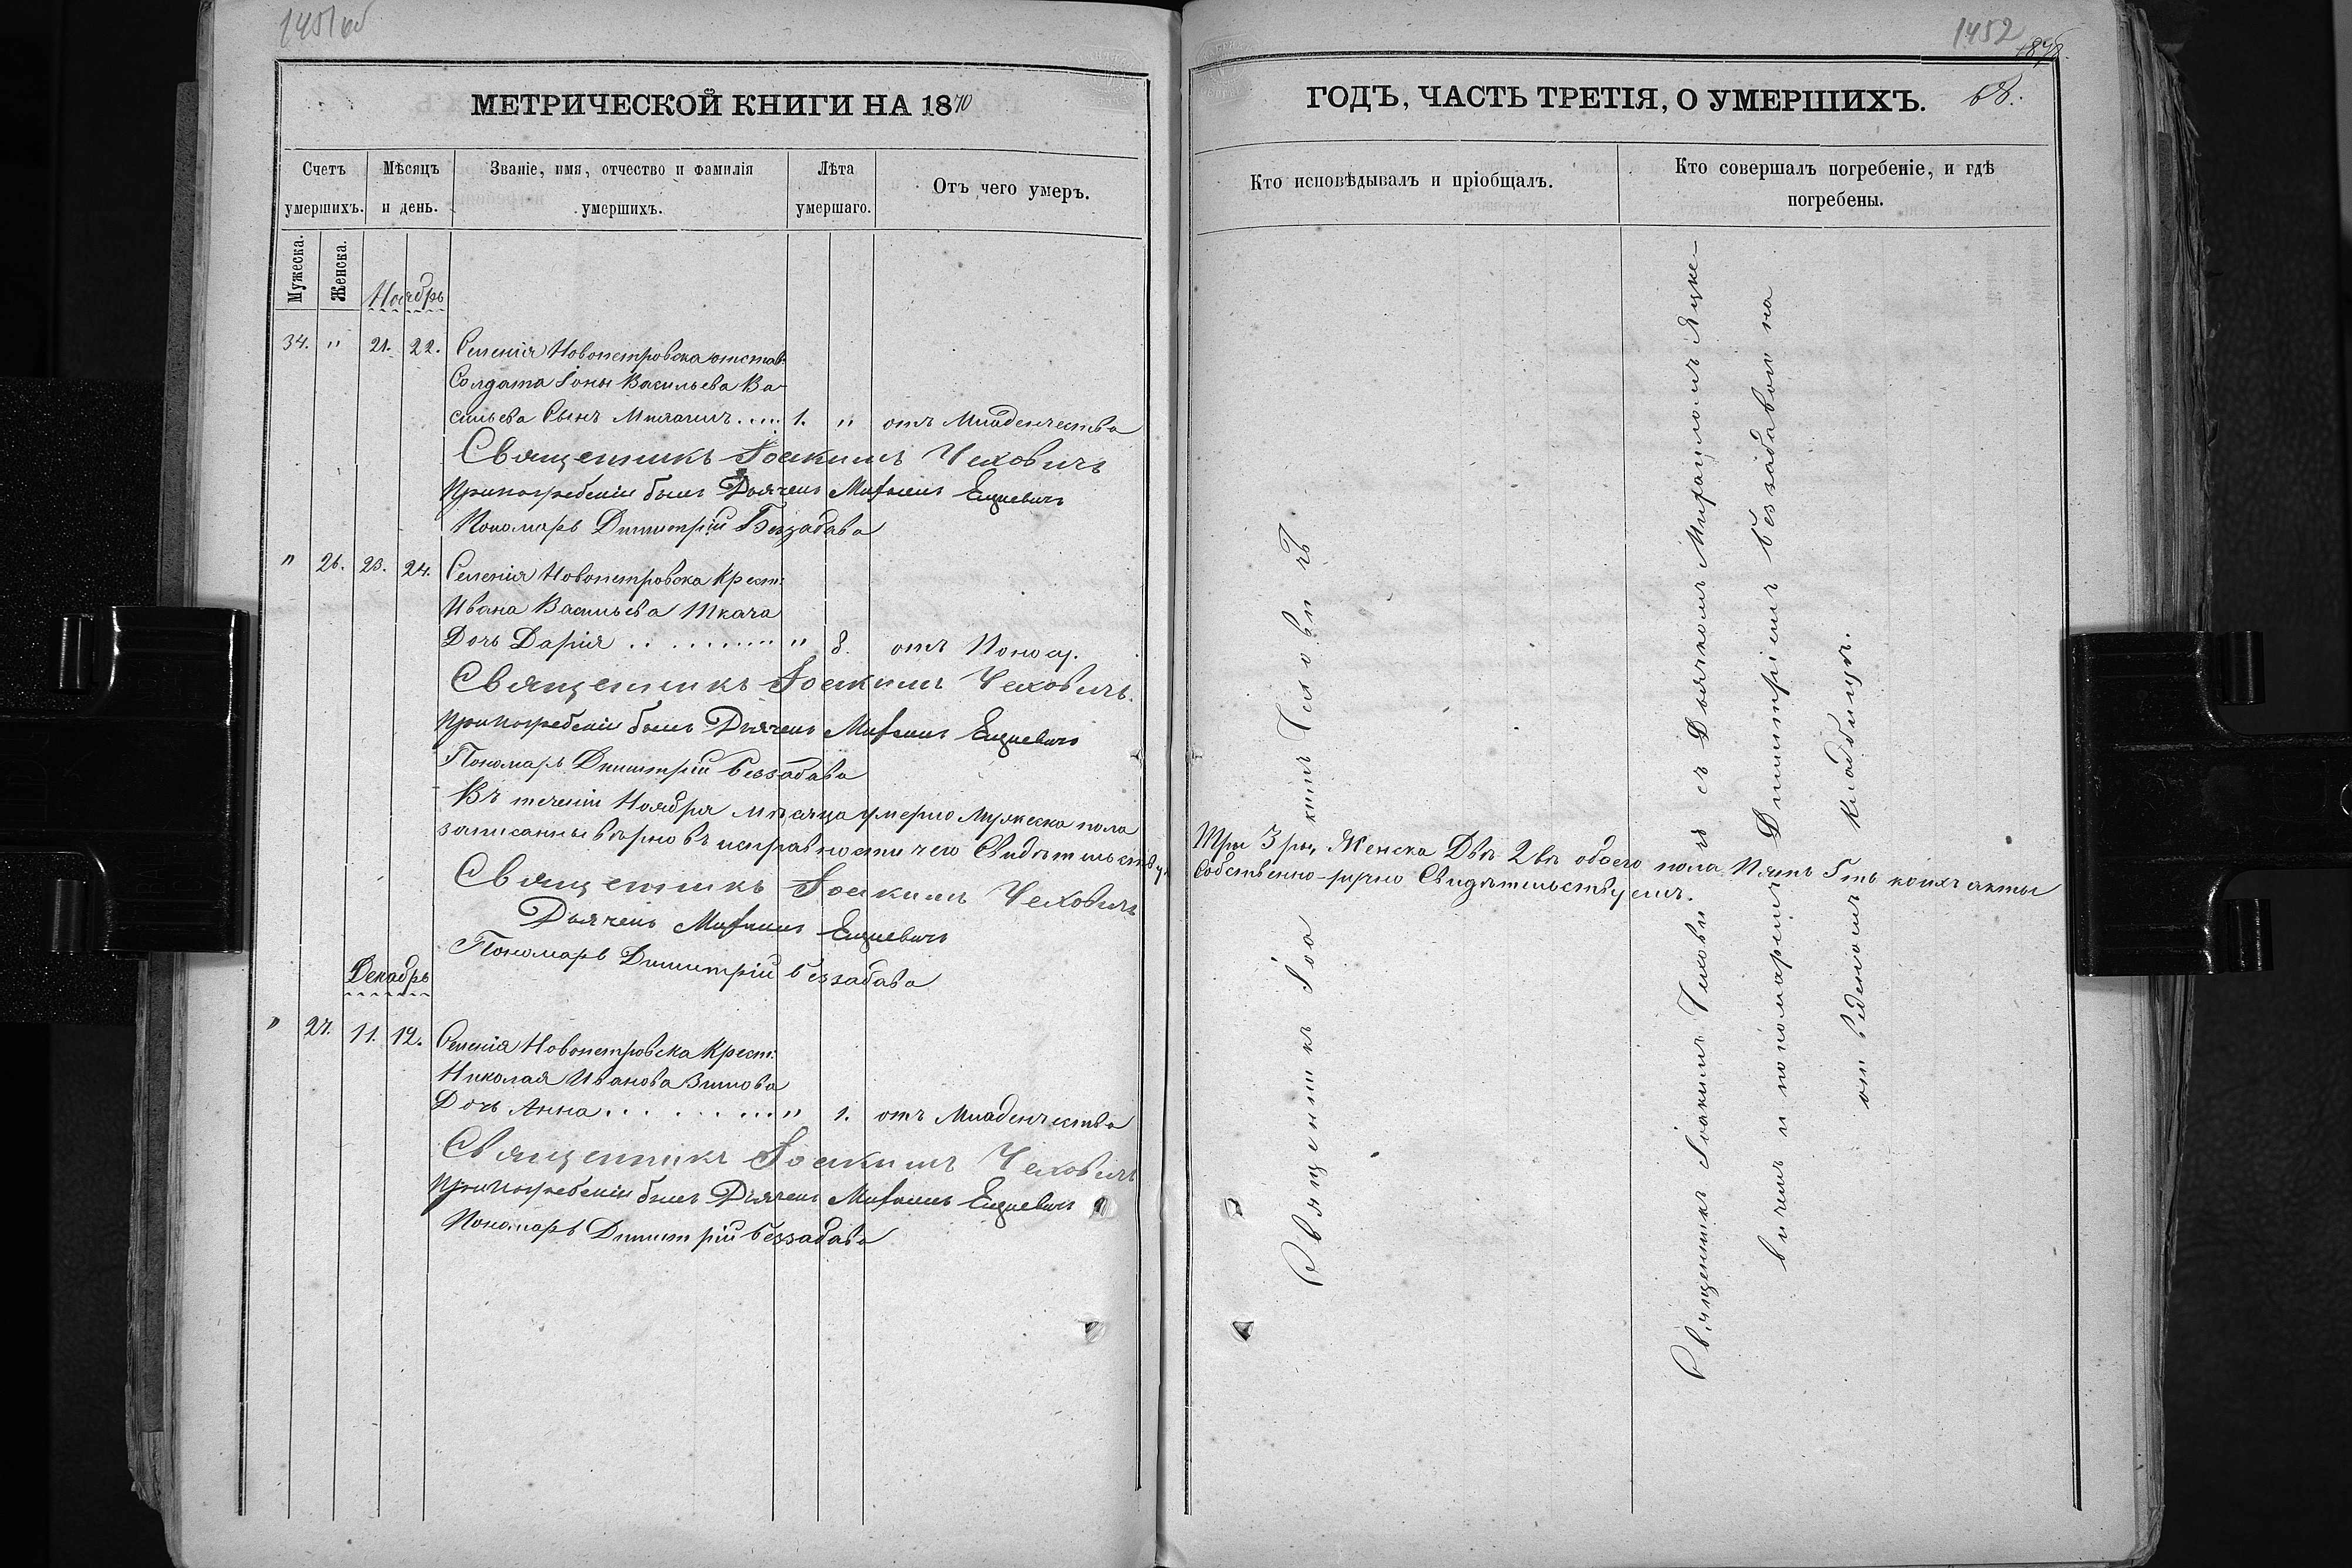 1451 об
МЕТРИЧЕСКОЙ КНИГИ НА 1870
Счетъ умершихъ.
Мѣсяцъ и день.
Званіе, имя, отчество и фамилія умершихъ.
Лѣта умершаго.
Отъ чего умеръ.
Мужеска.
Женска.
Ноябрь
34. " 21. 22. Селенія Новопетровска отстав:
Солдата Іоны Васильева Ва-
сильева Сынъ Михаилъ..... 1. " отъ Младенчества
Священникъ Іоакимъ Чехович
При погребеніи былъ Дьячекъ
Пономарь Димитрій Беззабава
" 26. 23. 24. Селенія Новопетровска Крест:
Ивана Васильева Ткача
Дочь Дарія .. ........ " 8. отъ Поносу.
Священникъ Іоакимъ Чеховичъ.
При погребеніи былъ Дьячекъ
Пономарь Димитрій Беззабава
Въ теченіи Ноября мѣсяца умерло Мужеска пола
записанны вѣрно въ исправности чего Свидѣтельству
Священникъ Іоакимъ Чеховичъ
Дьячекъ
Пономарь Димитрій Беззабава
Декабрь
" 27. 11. 12. Селенія Новопетровска Крест:
Николая Иванова Зимова
Дочь Анна. . . . . . ... " 1. отъ Младенчества
Священникъ Іоакимъ Чеховичъ
При погребеніи былъ Дьячекъ
Пономарь Димитрій Беззабава
1452
ГОДЪ, ЧАСТЬ ТРЕТІЯ, О УМЕРШИХЪ. 68.
Кто исповѣдывалъ и пріобщалъ.
Кто совершалъ погребеніе, и гдѣ погребены.
Три 3 ри, Женска Двѣ 2 вѣ обоего пола Пять 5 ть коихъ акты
Собственно-ручно Свидѣтельствуемъ.
Священникъ Іоакимъ Чеховичъ
Священникъ Іоакимъ Чеховичъ съ Дьячкомъ
вичемъ и пономаремъ Димитріемъ Беззабавою на
отведенномъ кладбищѣ.